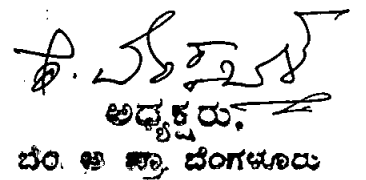 ಅಧ್ಯಕ್ಷರು.
ಬೆಂ. ಅ. ಪ್ರಾ. ಬೆಂಗಳೂರು